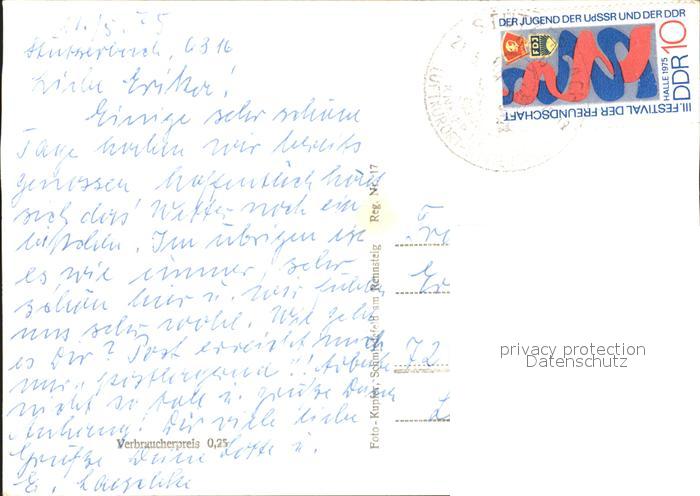 Stützerbach, 6316
Liebe Erika!
Einige sehr schöne
Tage haben wir bereits
genossen hoffentlich hält
sich das Wetter noch ein
bißchen. Im übrigen ist
es, wie immer, sehr
schön hier u. wir fühlen
uns sehr wohl. Wie geht
es Dir? Post erreicht mich
nur "postlagernd"! Arbeite
nicht so toll u. grüße Deinen
Anhang! Dir viele liebe
Grüße Deine Lotte u.
Verbraucherpreis 0,25
Foto - Kupfer, Schmiedefeld am Rennsteig Reg. Nr. 17
DER JUGEND DER UdSSR UND DER DDR
FDJ
HALLE 1975
DDR 10
III. FESTIVAL DER FREUNDSCHAFT
72
privacy protection
Datenschutz